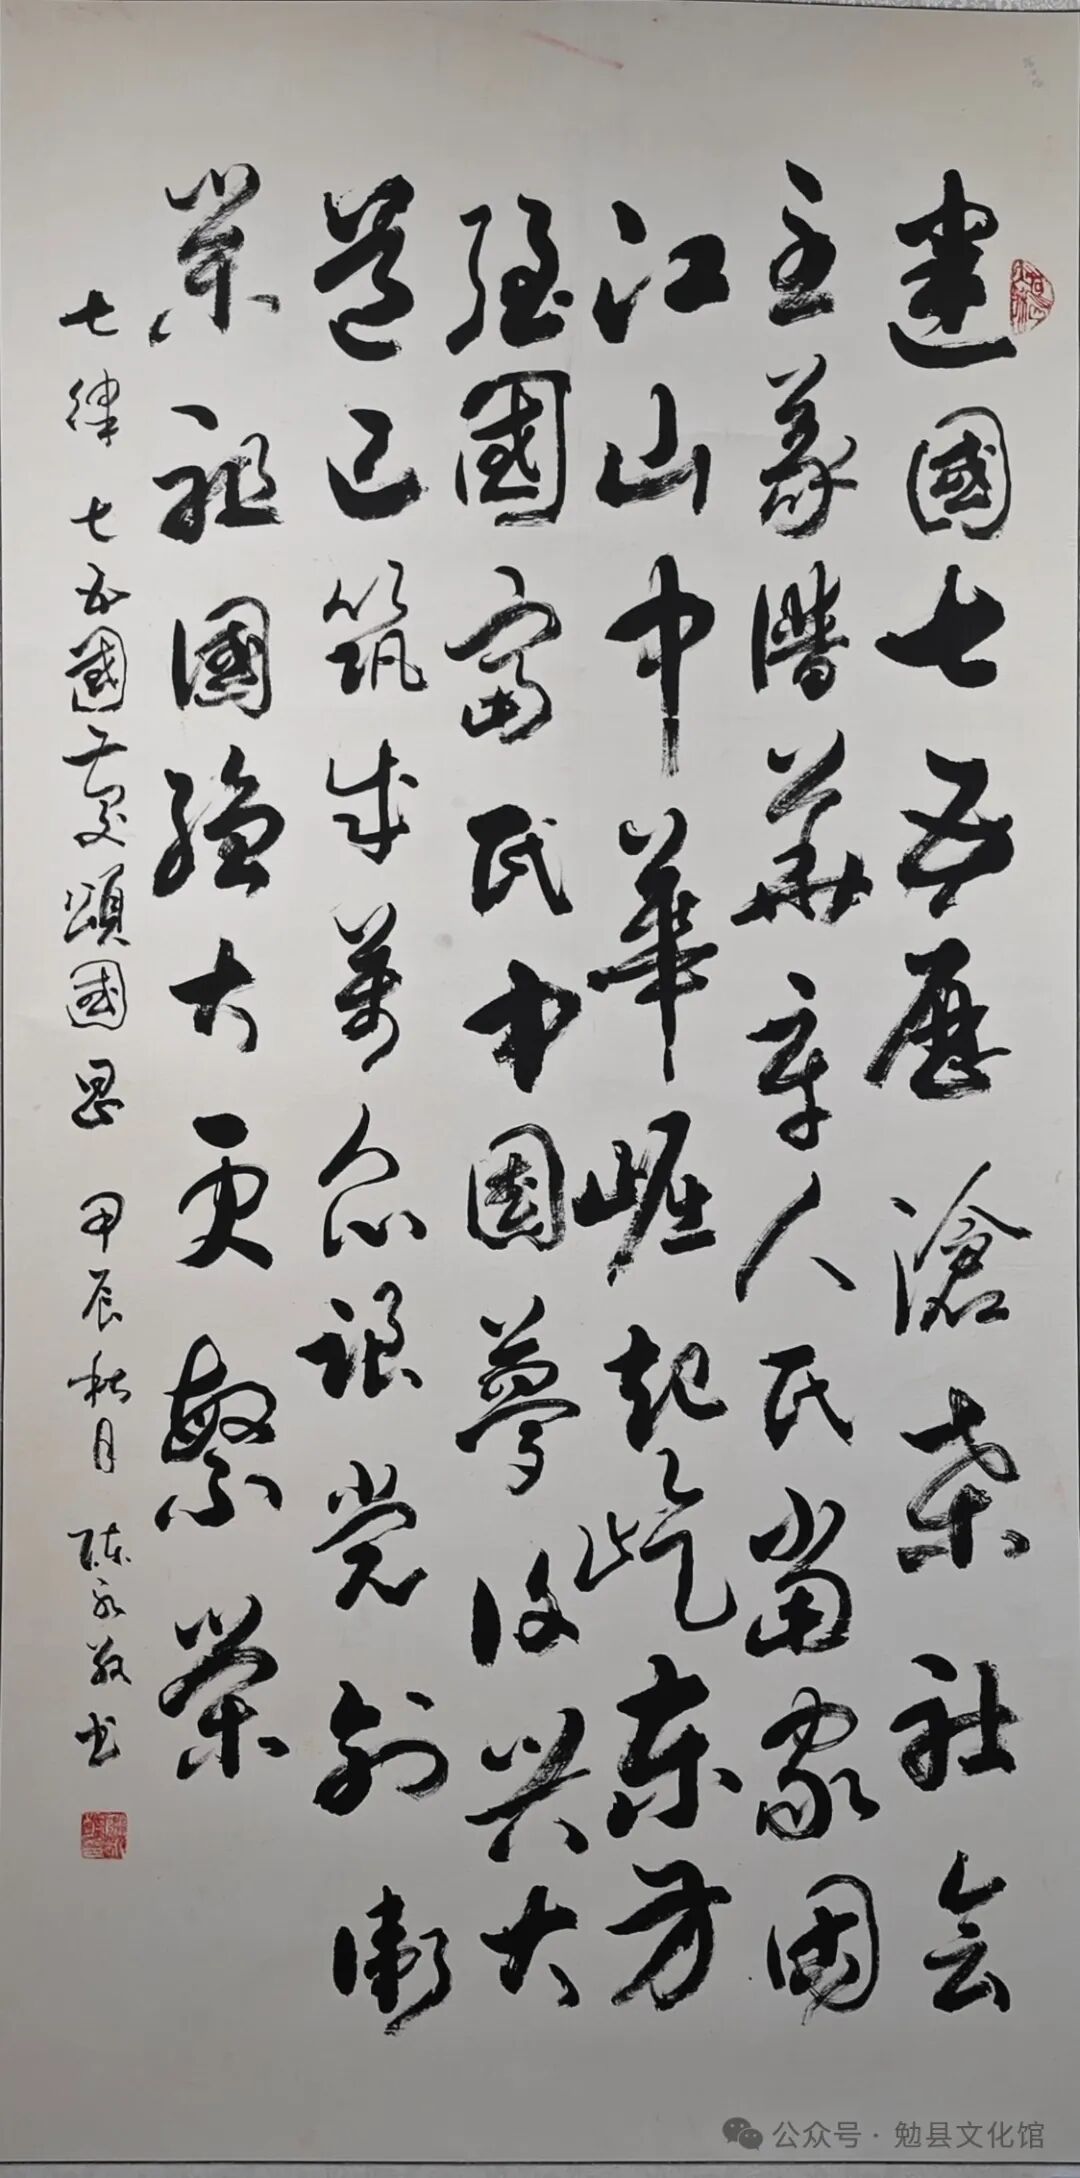 建國七五歷滄桑社会
主義譜華章人民當家國
江山中華崛起屹東方
強國富民中國夢復興大
道已筑成萬众跟党创新
業祖國強大更繁榮
七律 七五國慶頌國 甲辰秋月 陈永书
公众号·勉县文化馆